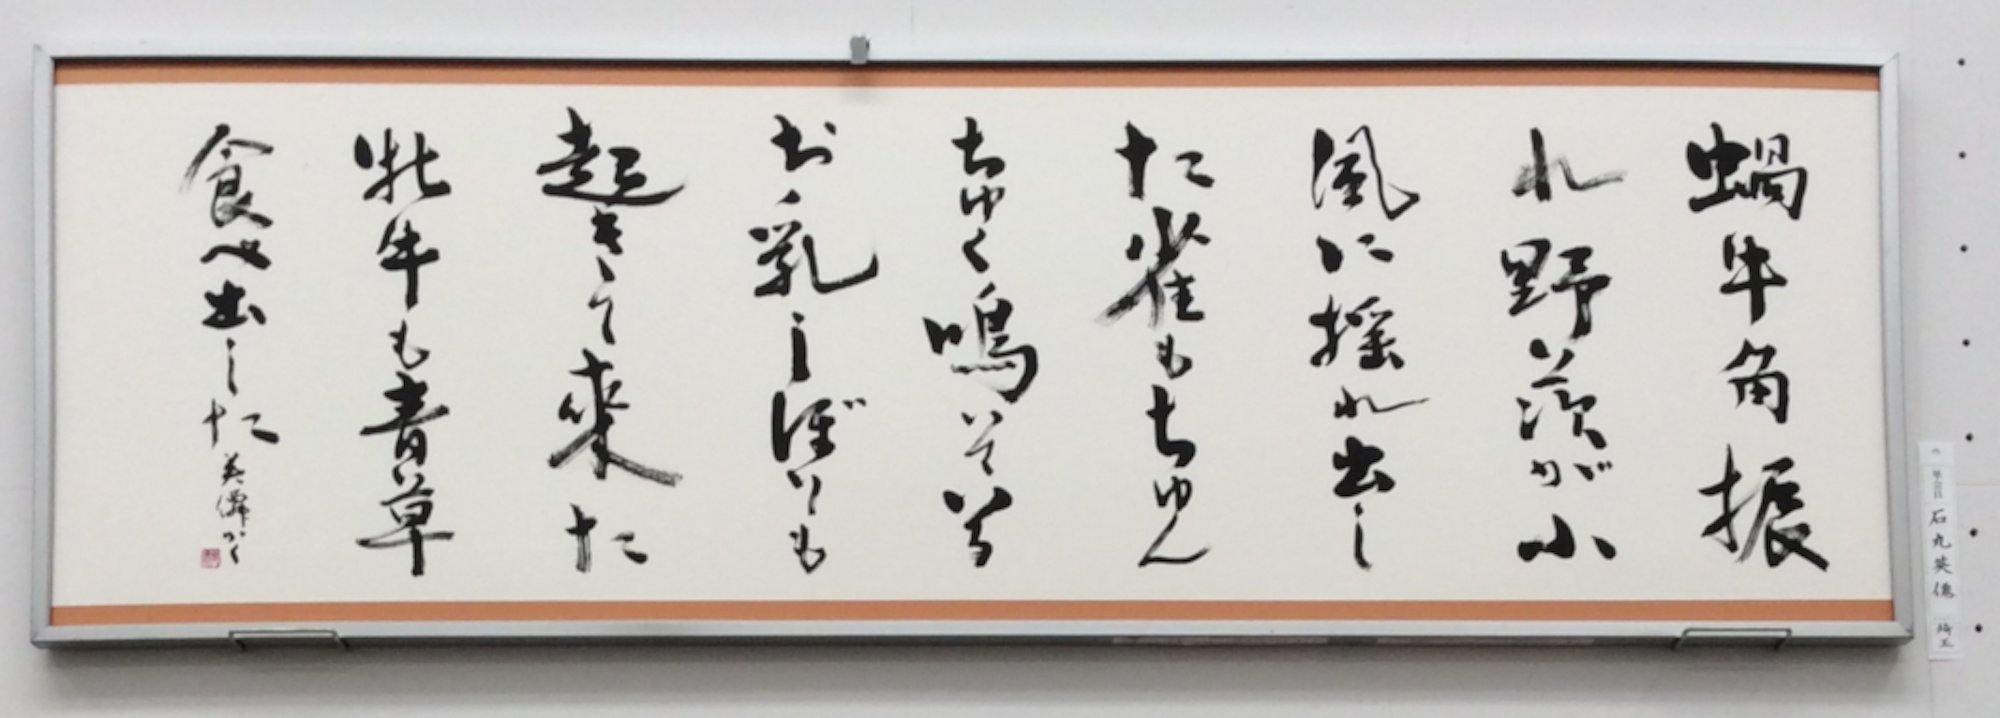 蝸牛角振
れ野茨が小
風に揺れ出し
た雀もちゆん
ちゆく鳴いてゐる
お乳しぼりも
起きて来た
牝牛も青草
食べ出した
英僊かく
石丸英僊
埼玉